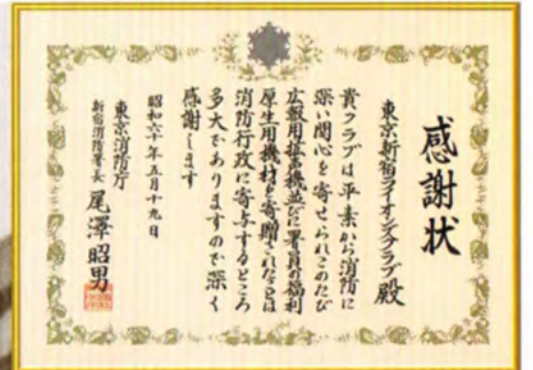 感謝状
東京新宿ライオンズクラブ殿
貴クラブは平素から消防に
深い関心を寄せられこのたび
広報用拡声機並びに署員の福利
厚生用機材を寄贈されたことは
消防行政に寄与するところ
多大でありますので深く
感謝します
昭和六十年五月十九日
東京消防庁
新宿消防署長 尾澤昭男